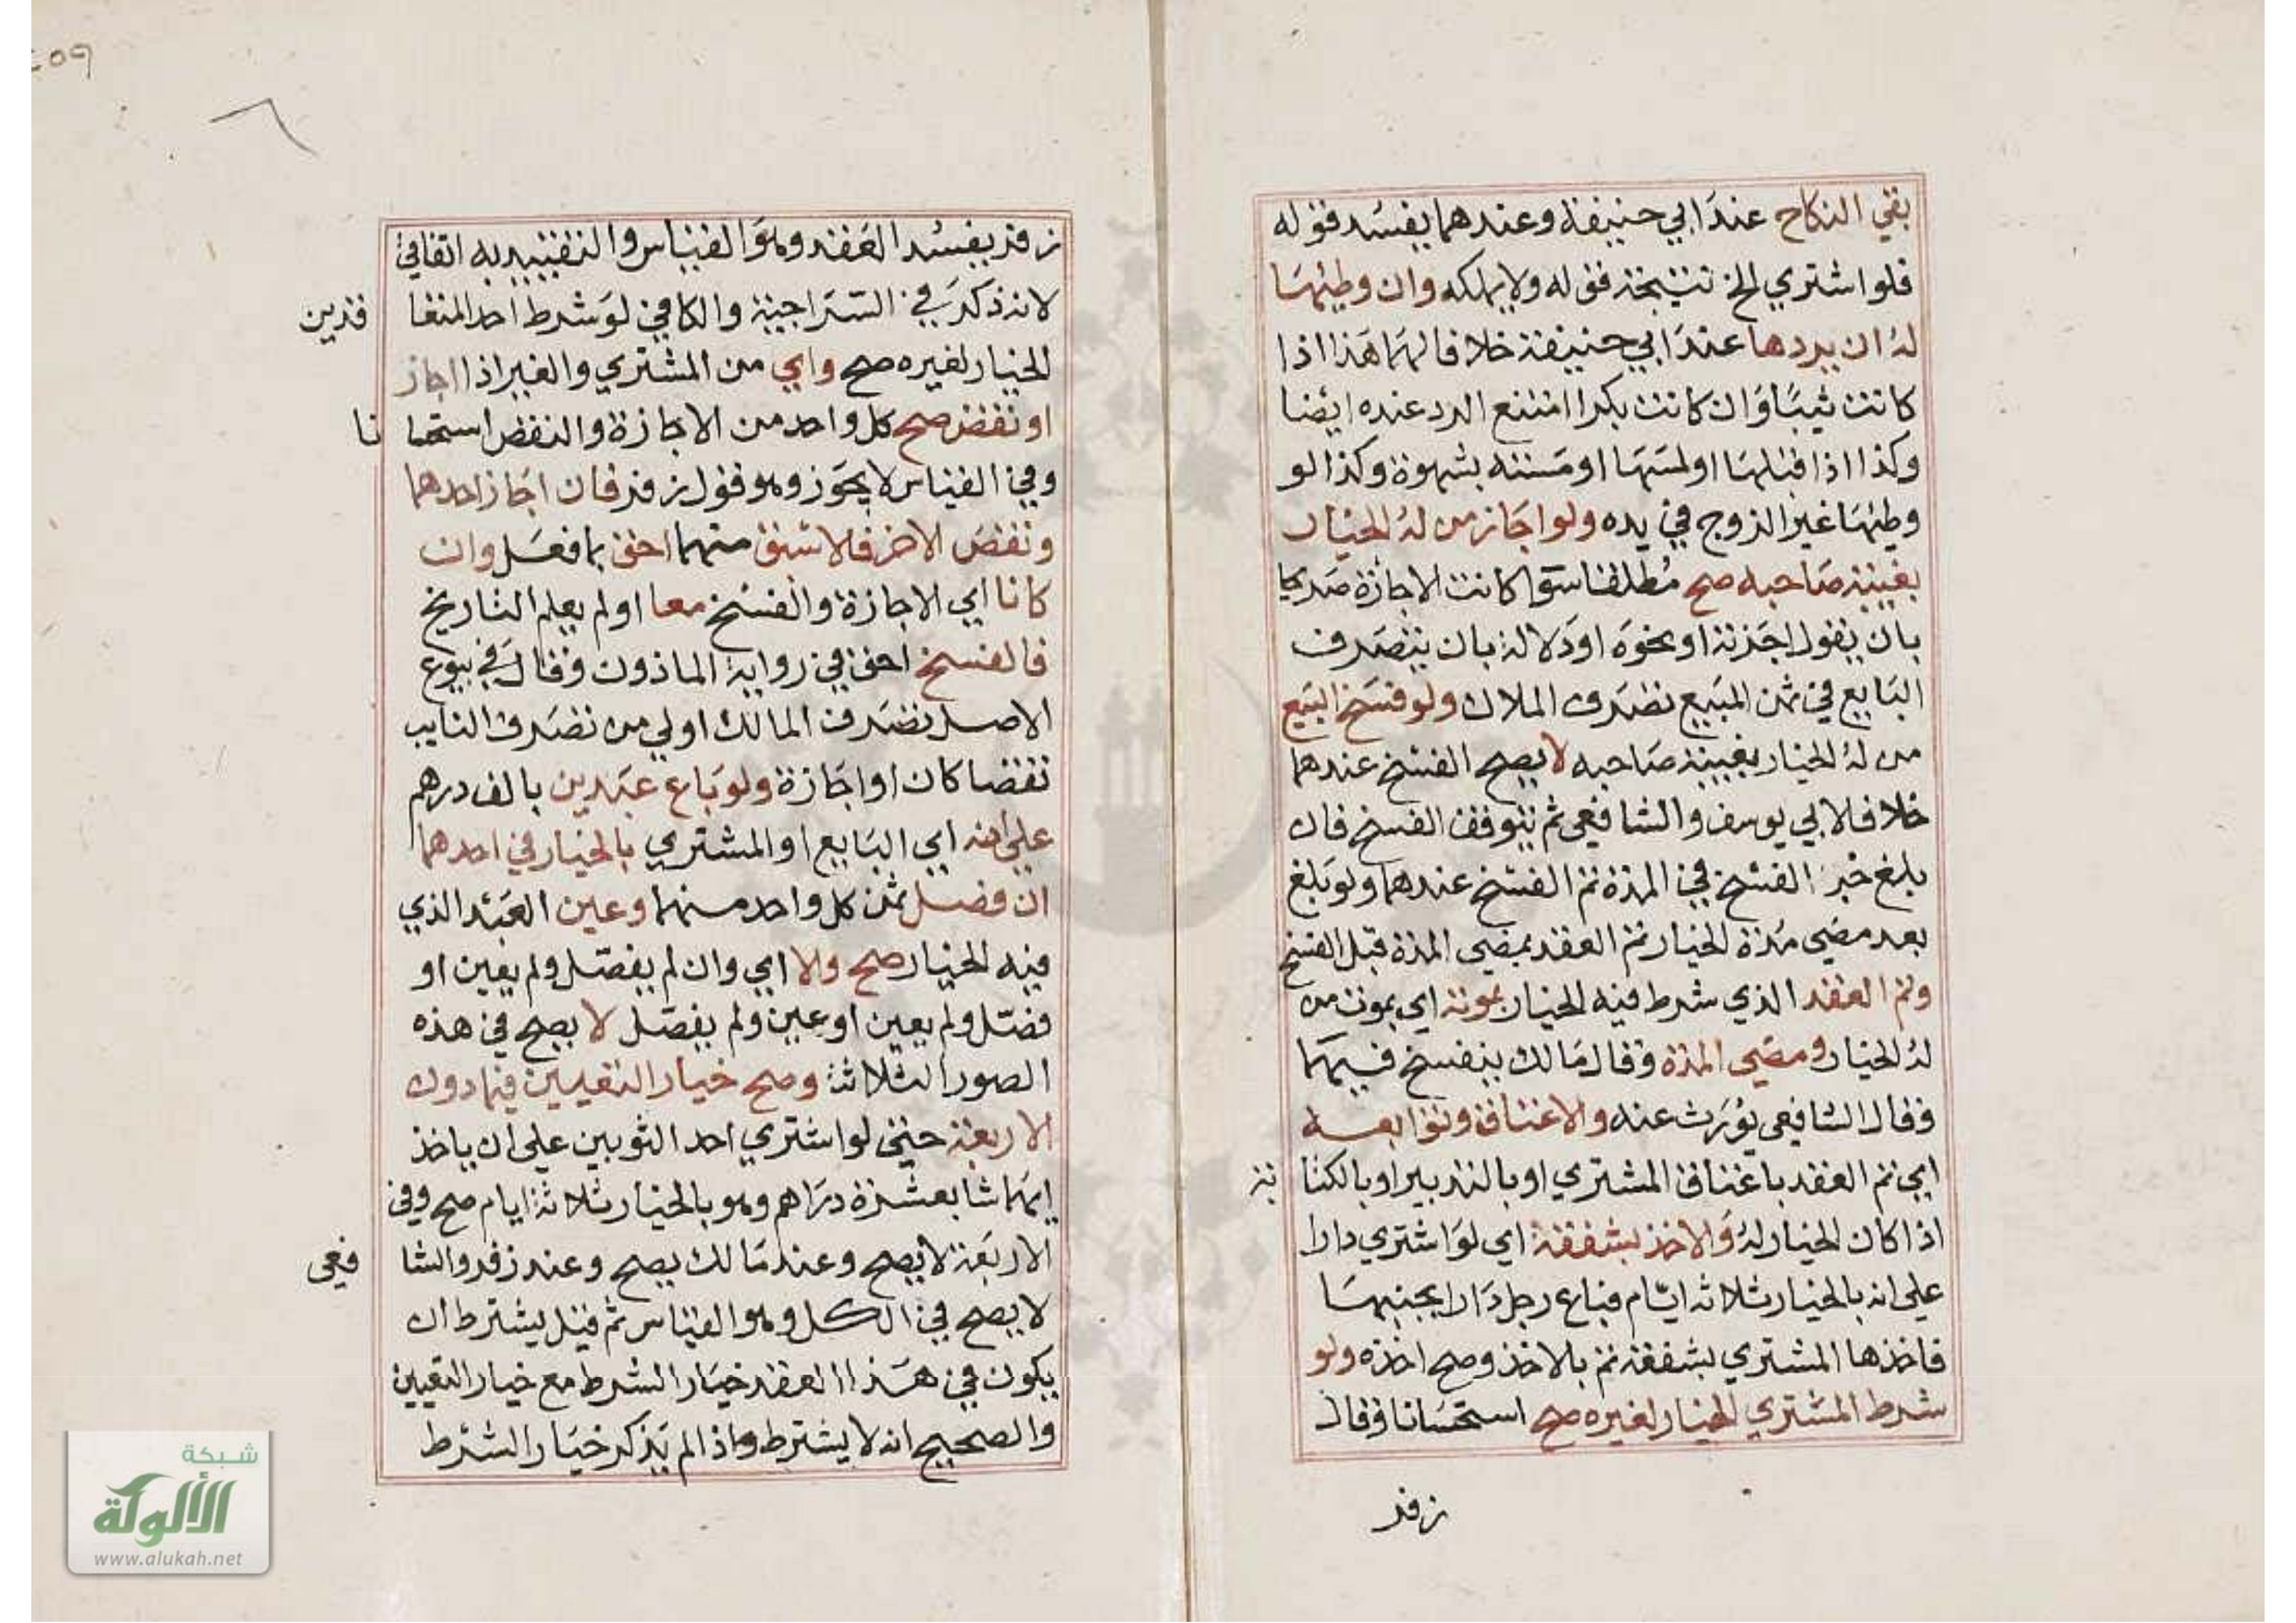 بقي النكاح عند ابي حنيفة وعندهما يفسد فقوله
فلو اشتري الخ نتيجة قوله ولا يملكه وان وطيها
له ان يردها عند ابي حنيفة خلافا لهما هذا اذا
كانت ثيبا وان كانت بكرا امتنع الرد عنده ايضا
وكذا اذا قبلها او لمسها او مسته بشهوة وكذا لو
وطيها غير الزوج في يده ولو اجاز من له الخيار
بغيبة صاحبه صح مطلقا سوا كانت الاجازة صريحا
بان يقول اجزته او نحوه او دلالة بان يتصرف
البايع في ثمن المبيع تصرف الملاك ولو فسخ البيع
من له الخيار بغيبة صاحبه لا يصح الفسخ عندهما
خلافا لابي يوسف والشافعي ثم يتوقف الفسخ فان
بلغ خبر الفسخ في المدة تم الفسخ عندهما ولو بلغ
بعد مضي مدة الخيار تم العقد بمضي المدة قبل الفسخ
وتم العقد الذي شرط فيه الخيار بموته اي بموت من
له الخيار ومضي المدة وقال مالك ينفسخ فيهما
وقال الشافعي يورث عنه والاعتاق وتوابعه
اي تم العقد باعتاق المشتري او بالتدبير او بالكتا بة
اذا كان الخيار له والاخذ بشفعة اي لو اشتري دارا
علي انه بالخيار ثلاثة ايام فباع رجل دارا بجنبها
فاخذها المشتري بشفعة تم بلاخذ وصح اخذه ولو
شرط المشتري الخيار لغيره صح استحسانا وقال
زفر
زفر يفسد العقد وهو القياس والتقييد به اتفاقي
لانه ذكر في السراجية والكافي لو شرط احد المتعا قدين
الخيار لغيره صح واي من المشتري والغير اذا اجاز
او نقض صح كل واحد من الاجازة والنقض استحسا نا
وفي القياس لا يجوز وهو قول زفر فان اجاز احدهما
ونقض الاخر فالاسبق منهما احق بما فعل وان
كانا اي الاجازة والفسخ معا او لم يعلم التاريخ
فالفسخ احق في رواية الماذون وقال في بيوع
الاصل تصرف المالك اولي من تصرف النايب
نقضا كان او اجازة ولو باع عبدين بالف درهم
علي انه اي البايع او المشتري بالخيار في احدهما
ان فصل ثمن كل واحد منهما وعين العبد الذي
فيه الخيار صح ولا اي وان لم يفصل ولم يعين او
فصل ولم يعين او عين ولم يفصل لا يصح في هذه
الصور الثلاث وصح خيار التعيين فيما دون
الاربعة حتي لو اشتري احد الثوبين علي ان ياخذ
ايهما شا بعشرة دراهم وهو بالخيار ثلاثة ايام صح وفي
الاربعة لا يصح وعند مالك يصح وعند زفر والشا فعي
لا يصح في الكل وهو القياس ثم قيل يشترط ان
يكون في هذا العقد خيار الشرط مع خيار التعيين
والصحيح انه لا يشترط واذا لم يذكر خيار الشرط
شبكة
الألوكة
www.alukah.net